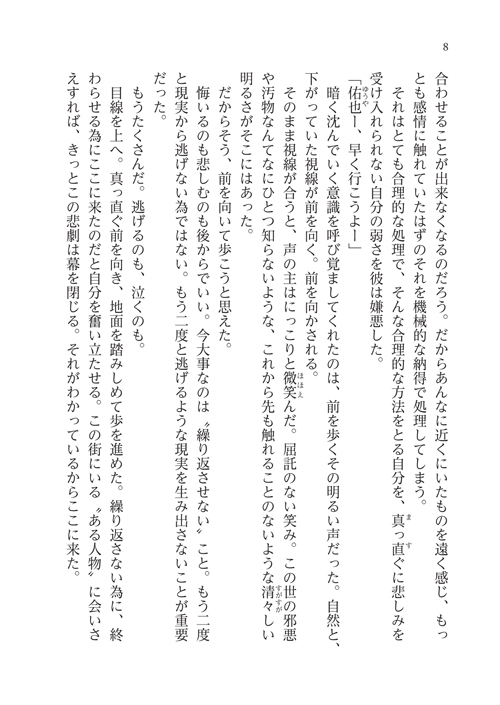 8
合わせることが出来なくなるのだろう。だからあんなに近くにいたものを遠く感じ、もっ
とも感情に触れていたはずのそれを機械的な納得で処理してしまう。
それはとても合理的な処理で、そんな合理的な方法をとる自分を、真っ直ぐに悲しみを
受け入れられない自分の弱さを彼は嫌悪した。
「佑也ー、早く行こうよー」
暗く沈んでいく意識を呼び覚ましてくれたのは、前を歩くその明るい声だった。自然と、
下がっていた視線が前を向く。前を向かされる。
そのまま視線が合うと、声の主はにっこりと微笑んだ。屈託のない笑み。この世の邪悪
や汚物なんてなにひとつ知らないような、これから先も触れることのないような清々しい
明るさがそこにはあった。
だからそう、前を向いて歩こうと思えた。
悔いるのも悲しむのも後からでいい。今大事なのは〝繰り返させない〟こと。もう二度
と現実から逃げない為ではない。もう二度と逃げるような現実を生み出さないことが重要
だった。
もうたくさんだ。逃げるのも、泣くのも。
目線を上へ。真っ直ぐ前を向き、地面を踏みしめて歩を進めた。繰り返さない為に、終
わらせる為にここに来たのだと自分を奮い立たせる。この街にいる〝ある人物〟に会いさ
えすれば、きっとこの悲劇は幕を閉じる。それがわかっているからここに来た。